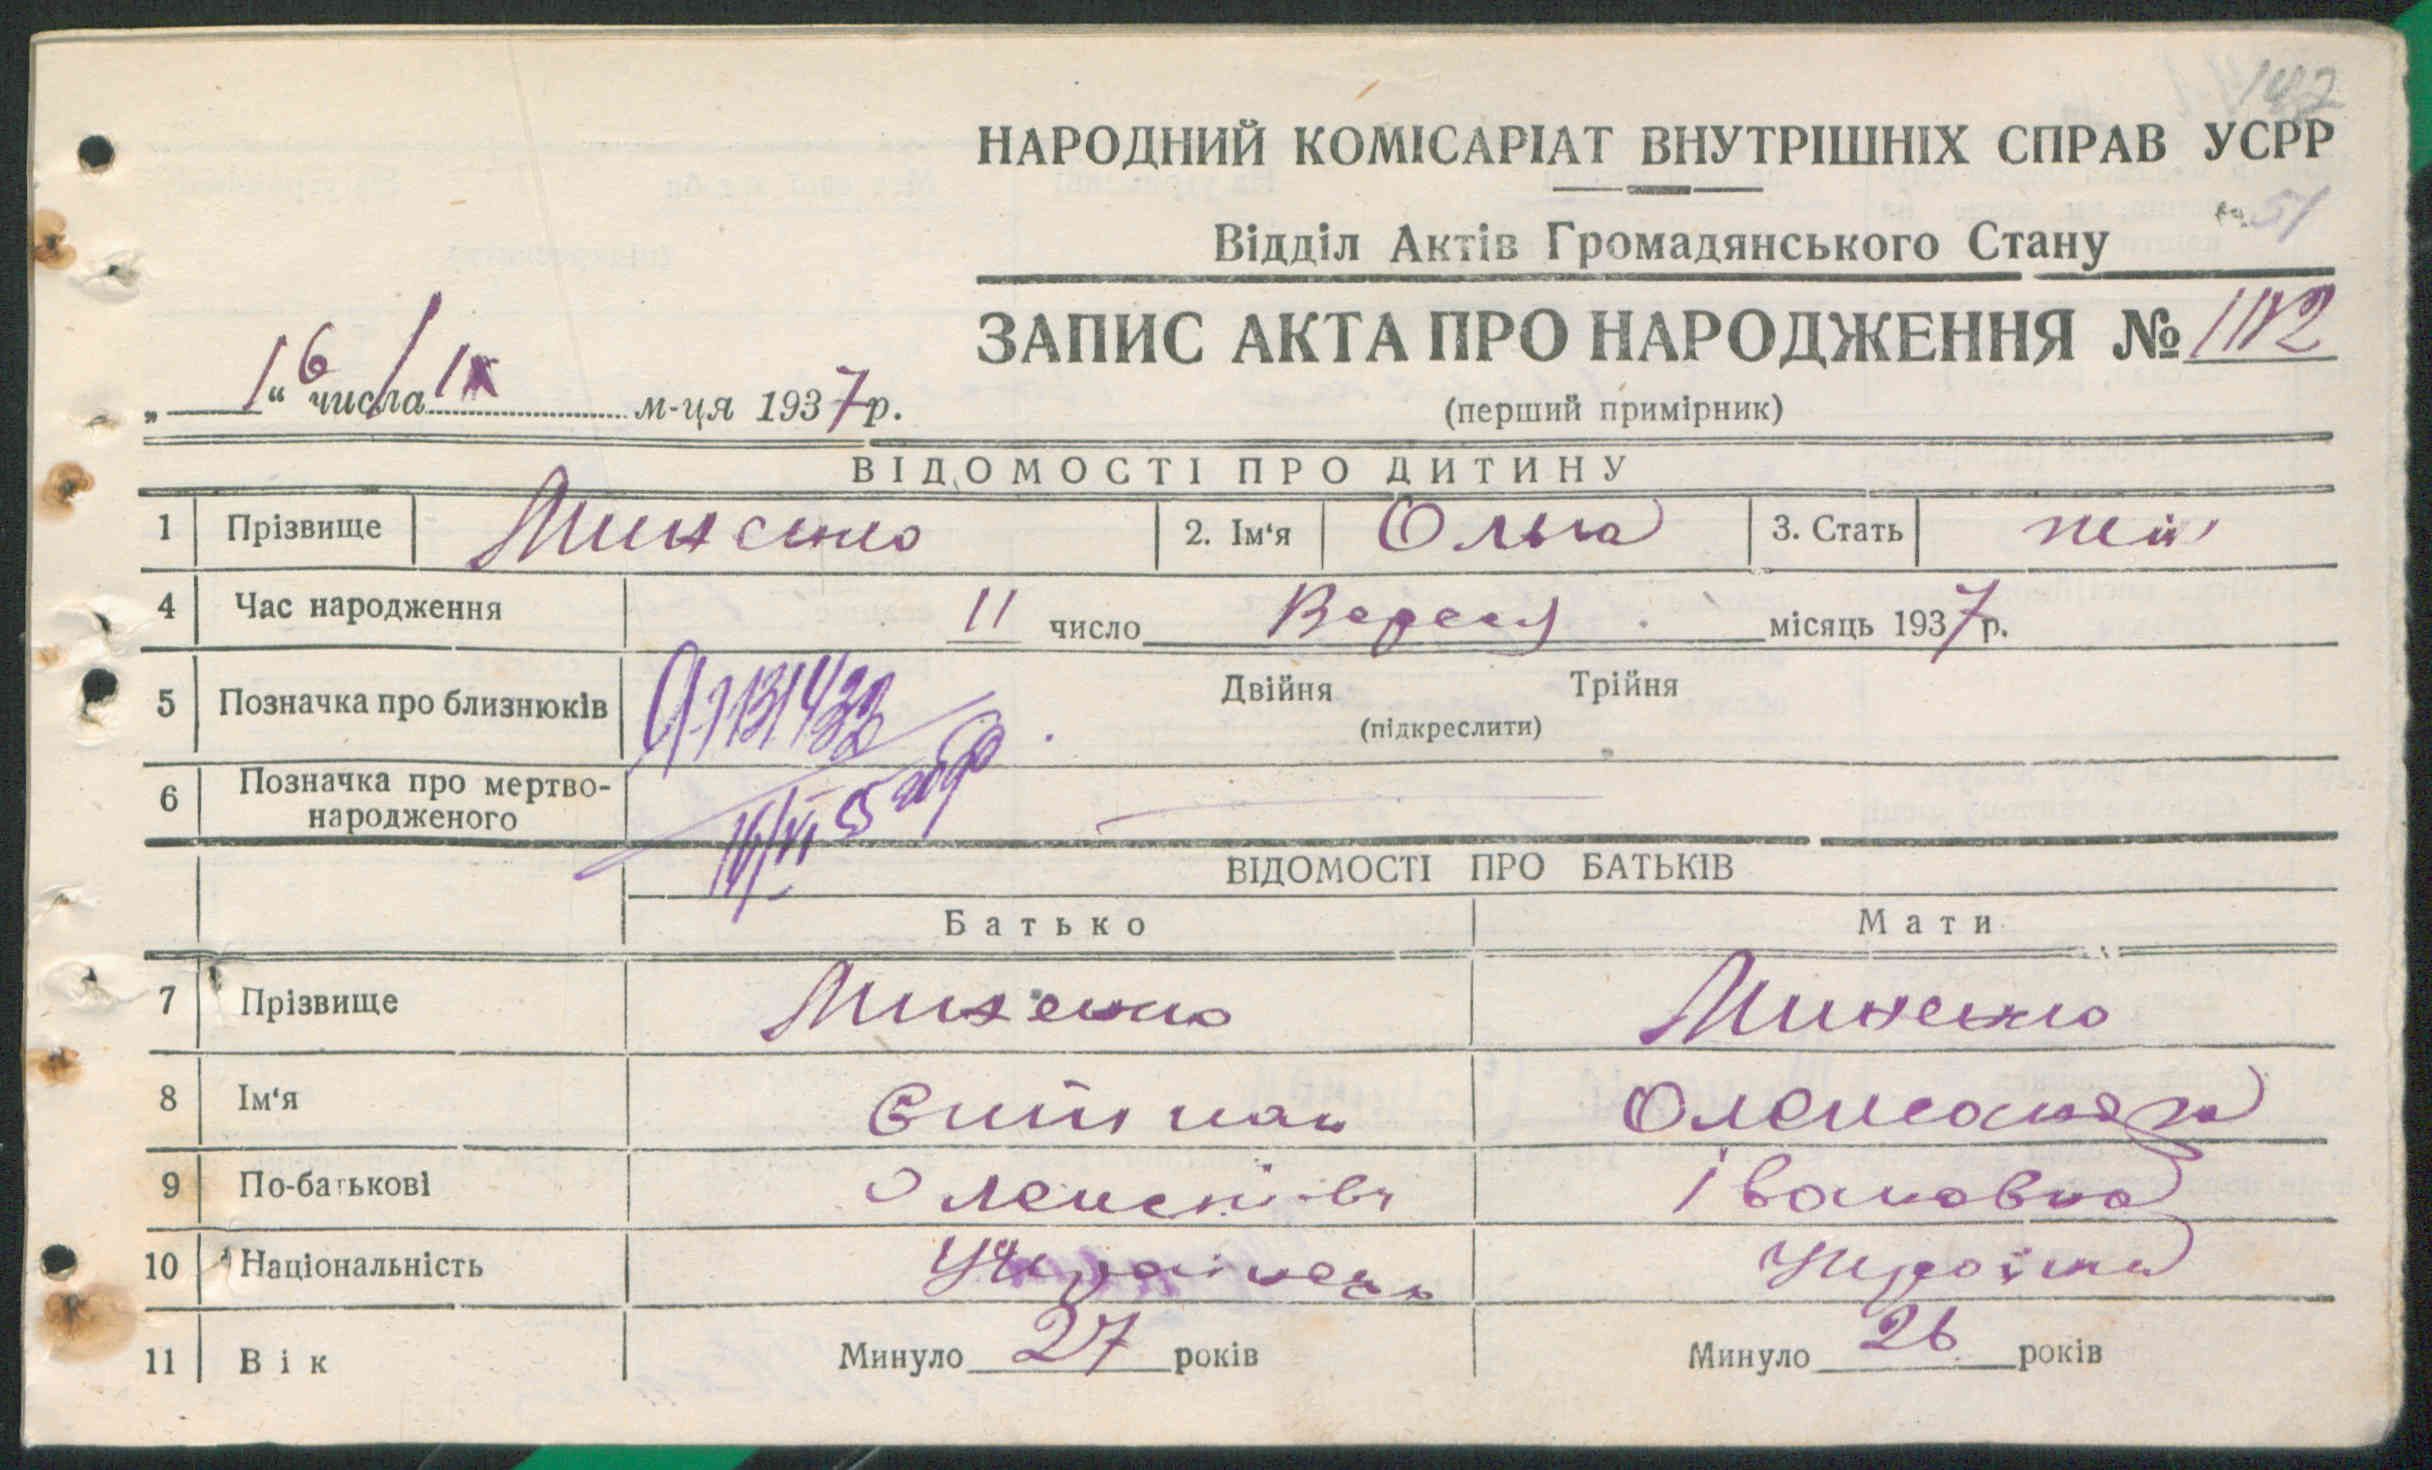 142
НАРОДНИЙ КОМІСАРІАТ ВНУТРІШНІХ СПРАВ УСРР
51
Відділ Актів Громадянського Стану
ЗАПИС АКТА ПРО НАРОДЖЕННЯ №
„16“ числа IX м-ця 1937 р.
(перший примірник)
ВІДОМОСТІ ПРО ДИТИНУ
1 Прізвище Миненко 2. Ім‘я Ольга 3. Стать жін
4 Час народження 11 число Вересня місяць 1937 р.
5 Позначка про близнюків Двійня Трійня
(підкреслити)
6 Позначка про мертво-
народженого
ВІДОМОСТІ ПРО БАТЬКІВ
Батько Мати
7 Прізвище Миненко Миненко
8 Ім‘я Олександра
9 По-батькові Івановна
10 Національність Українець Українка
11 Вік Минуло 27 років Минуло 26 років